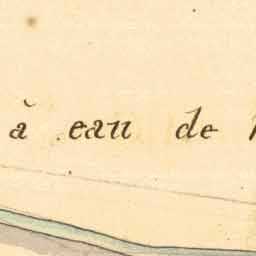 à eau de